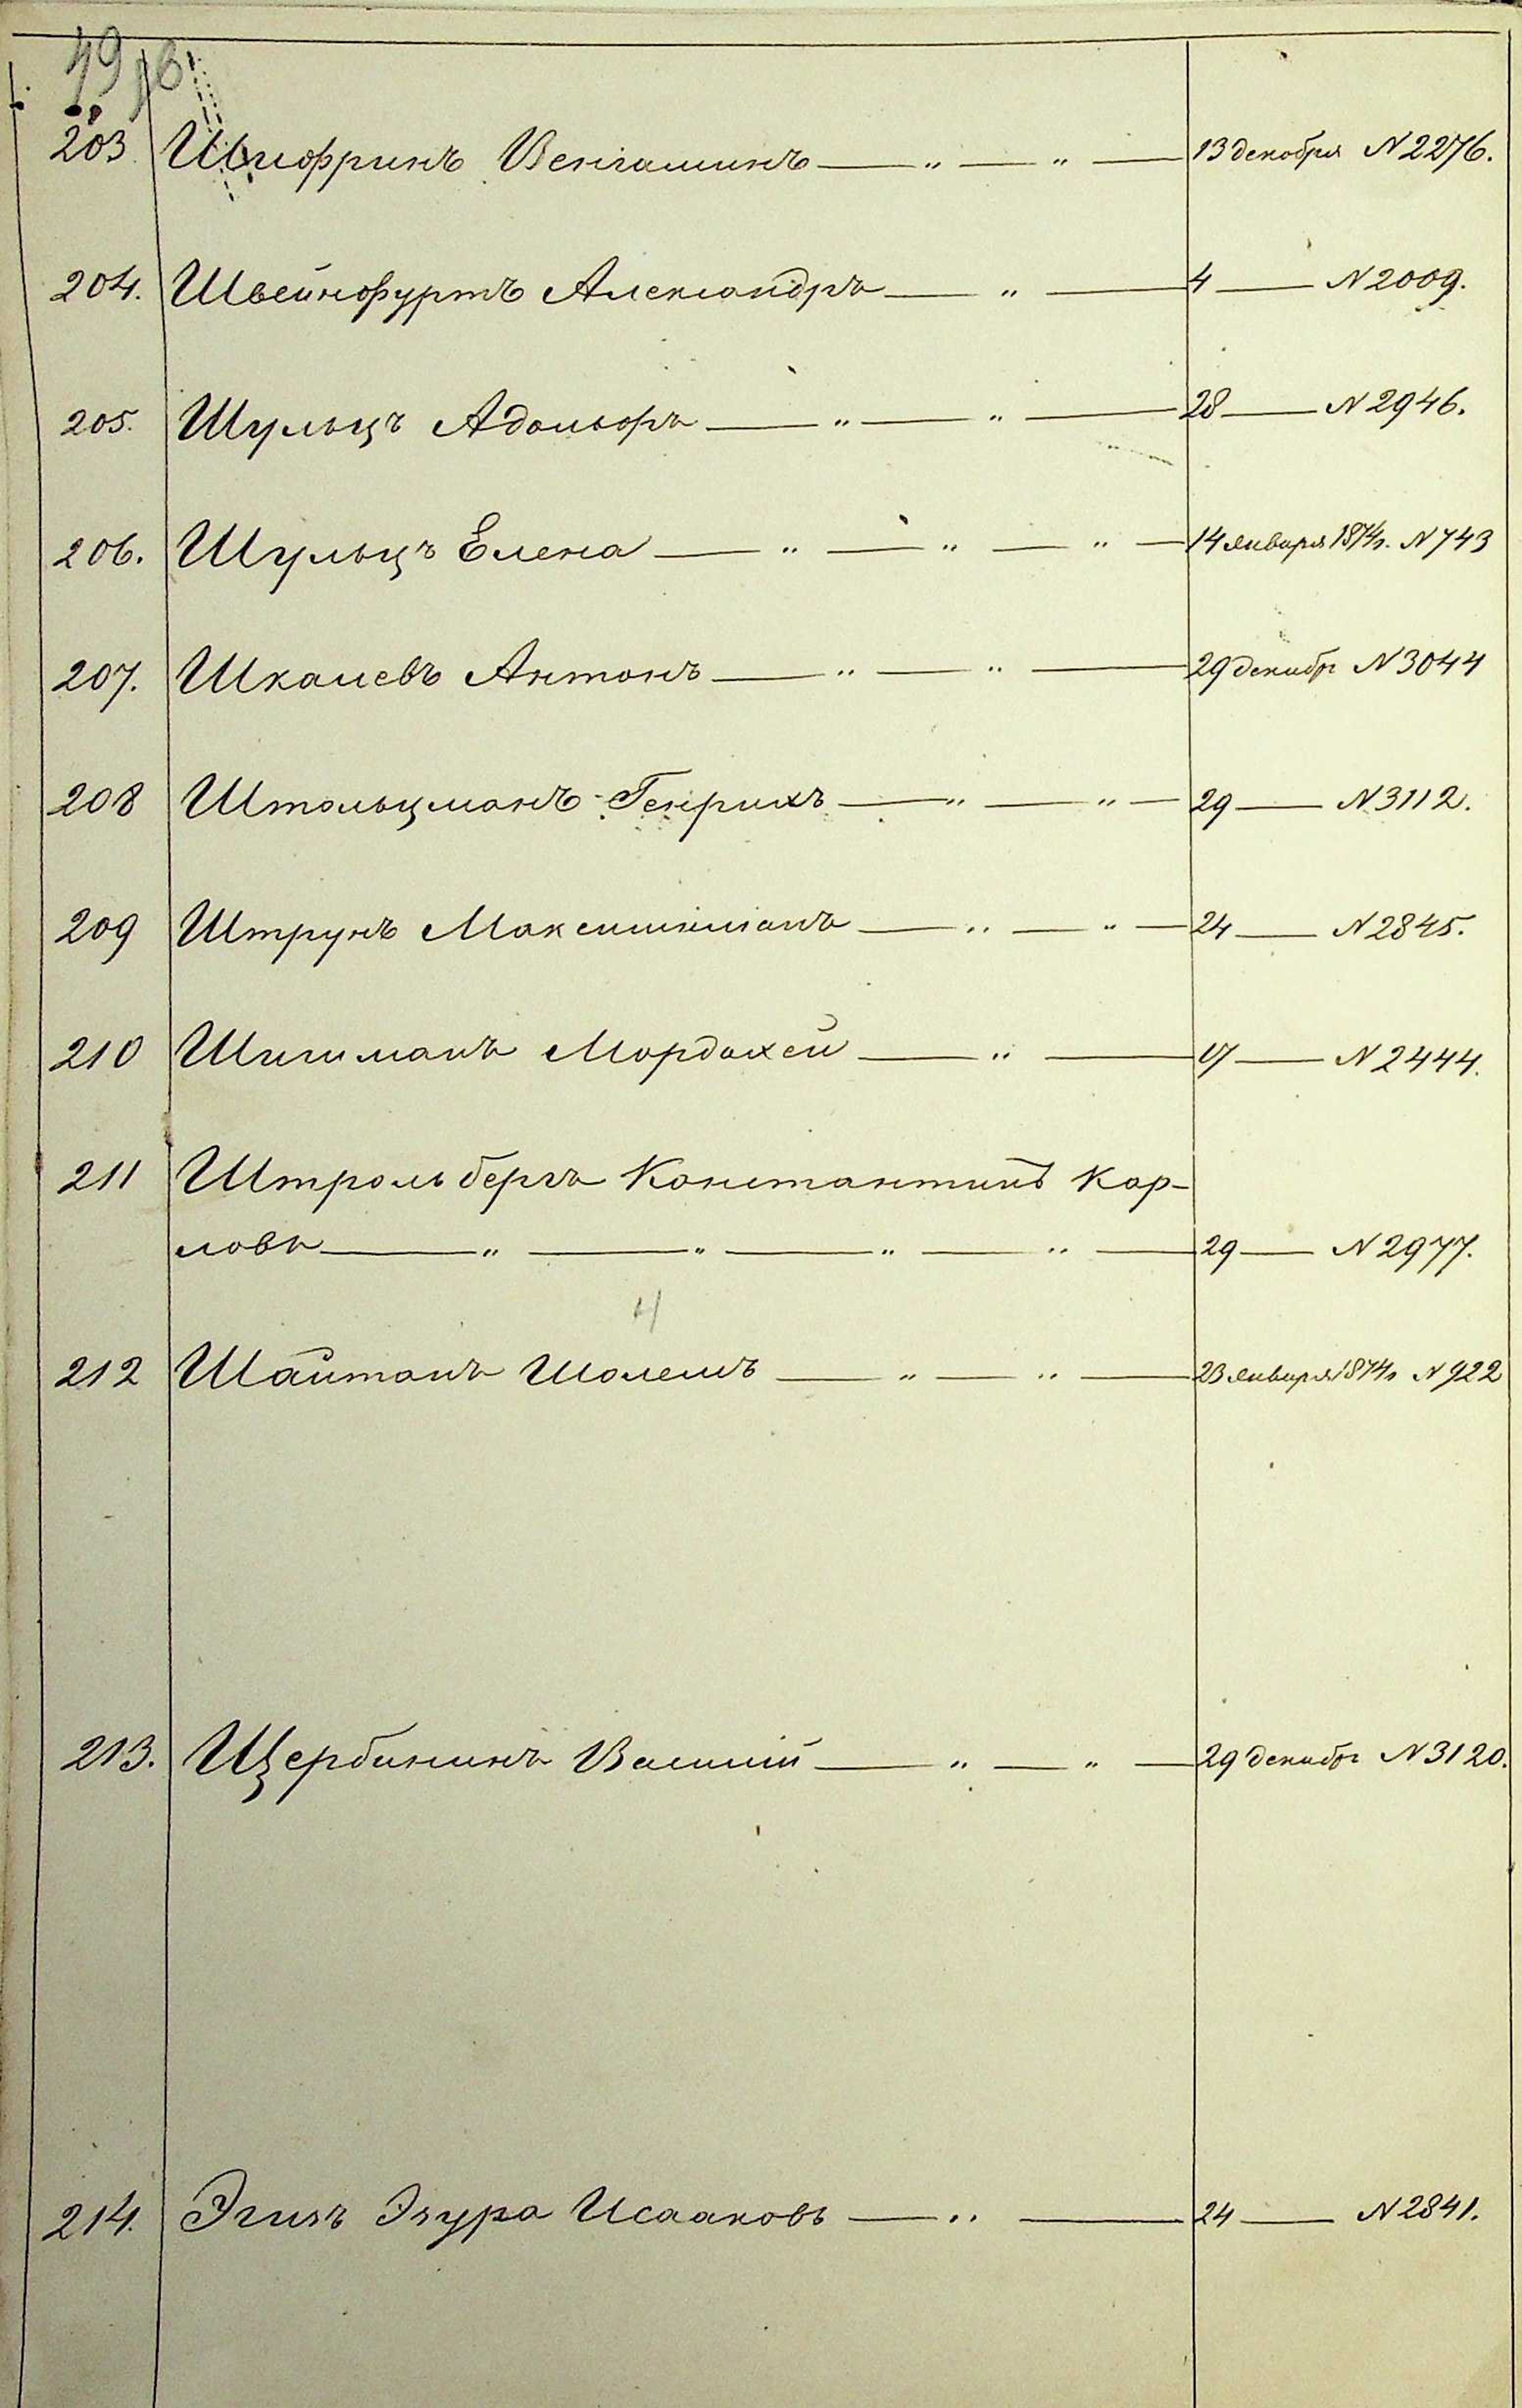 49
203 Шифринъ Веніаминъ — „ — „ — 13 декабря N 2276.
204. Швейнфуртъ Александръ — „ — 4 — N 2009.
205. Шульцъ Адольфъ — „ — „ — 28 — N 2946.
206. Шульцъ Елена — „ — „ — „ — 14 января 1874г. N 743
207. Шкалевъ Антонъ — „ — „ — 29 декабр N 3044
208 Штольцманъ Генрихъ — „ — „ — 29 — N 3112.
209 Штрунъ Максимиліанъ — „ — „ — 24 — N 2845.
210 Мордахей — „ — 17 — N 2444.
211 Штральбергъ Константинъ Кар-
ловъ — „ — „ — „ — „ — 29 — N 2977.
4
212 Шайтанъ Шолемъ — „ — „ — 23 января 1874г N 922
213. Щербининъ Василий — „ — „ — 29 декабр N 3120.
214. Эгизъ Эзура Исааковъ — „ — 24 — N 2841.